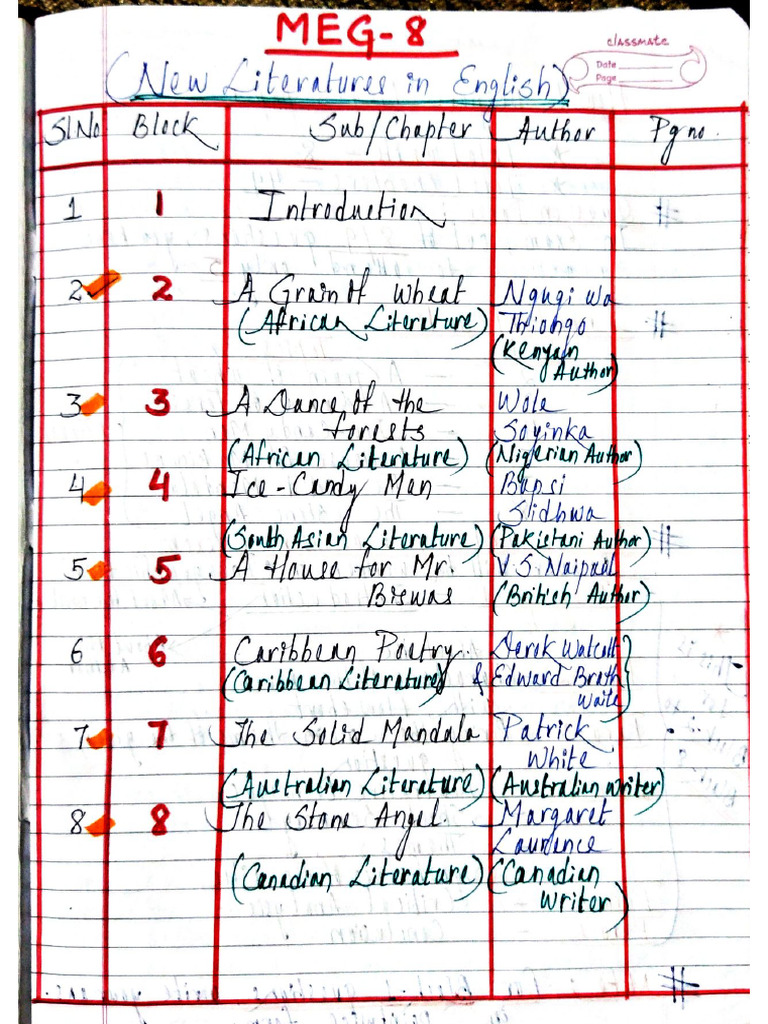 MEG-8
classmate
Date
Page
(New Literatures in English)
Sl No Block Sub/Chapter Author Pg no.
1 1 Introduction #
2 2 A Grain of Wheat Ngugi wa
(African Literature) Thiongo
(Kenyan
Author)
3 3 A Dance of the Wole
forests Soyinka
(African Literature) (Nigerian Author)
4 4 Ice-Candy Man Bapsi
Sidhwa
(South Asian Literature) (Pakistani Author) #
5 5 A House for Mr. V.S. Naipaul
Biswas (British Author)
6 6 Caribbean Poetry Derek Walcott
(Caribbean Literature) & Edward Brath
waite
7 7 The Solid Mandala Patrick
White
(Australian Literature) (Australian writer)
8 8 The Stone Angel. Margaret
Laurence
(Canadian Literature) (Canadian
Writer)
#